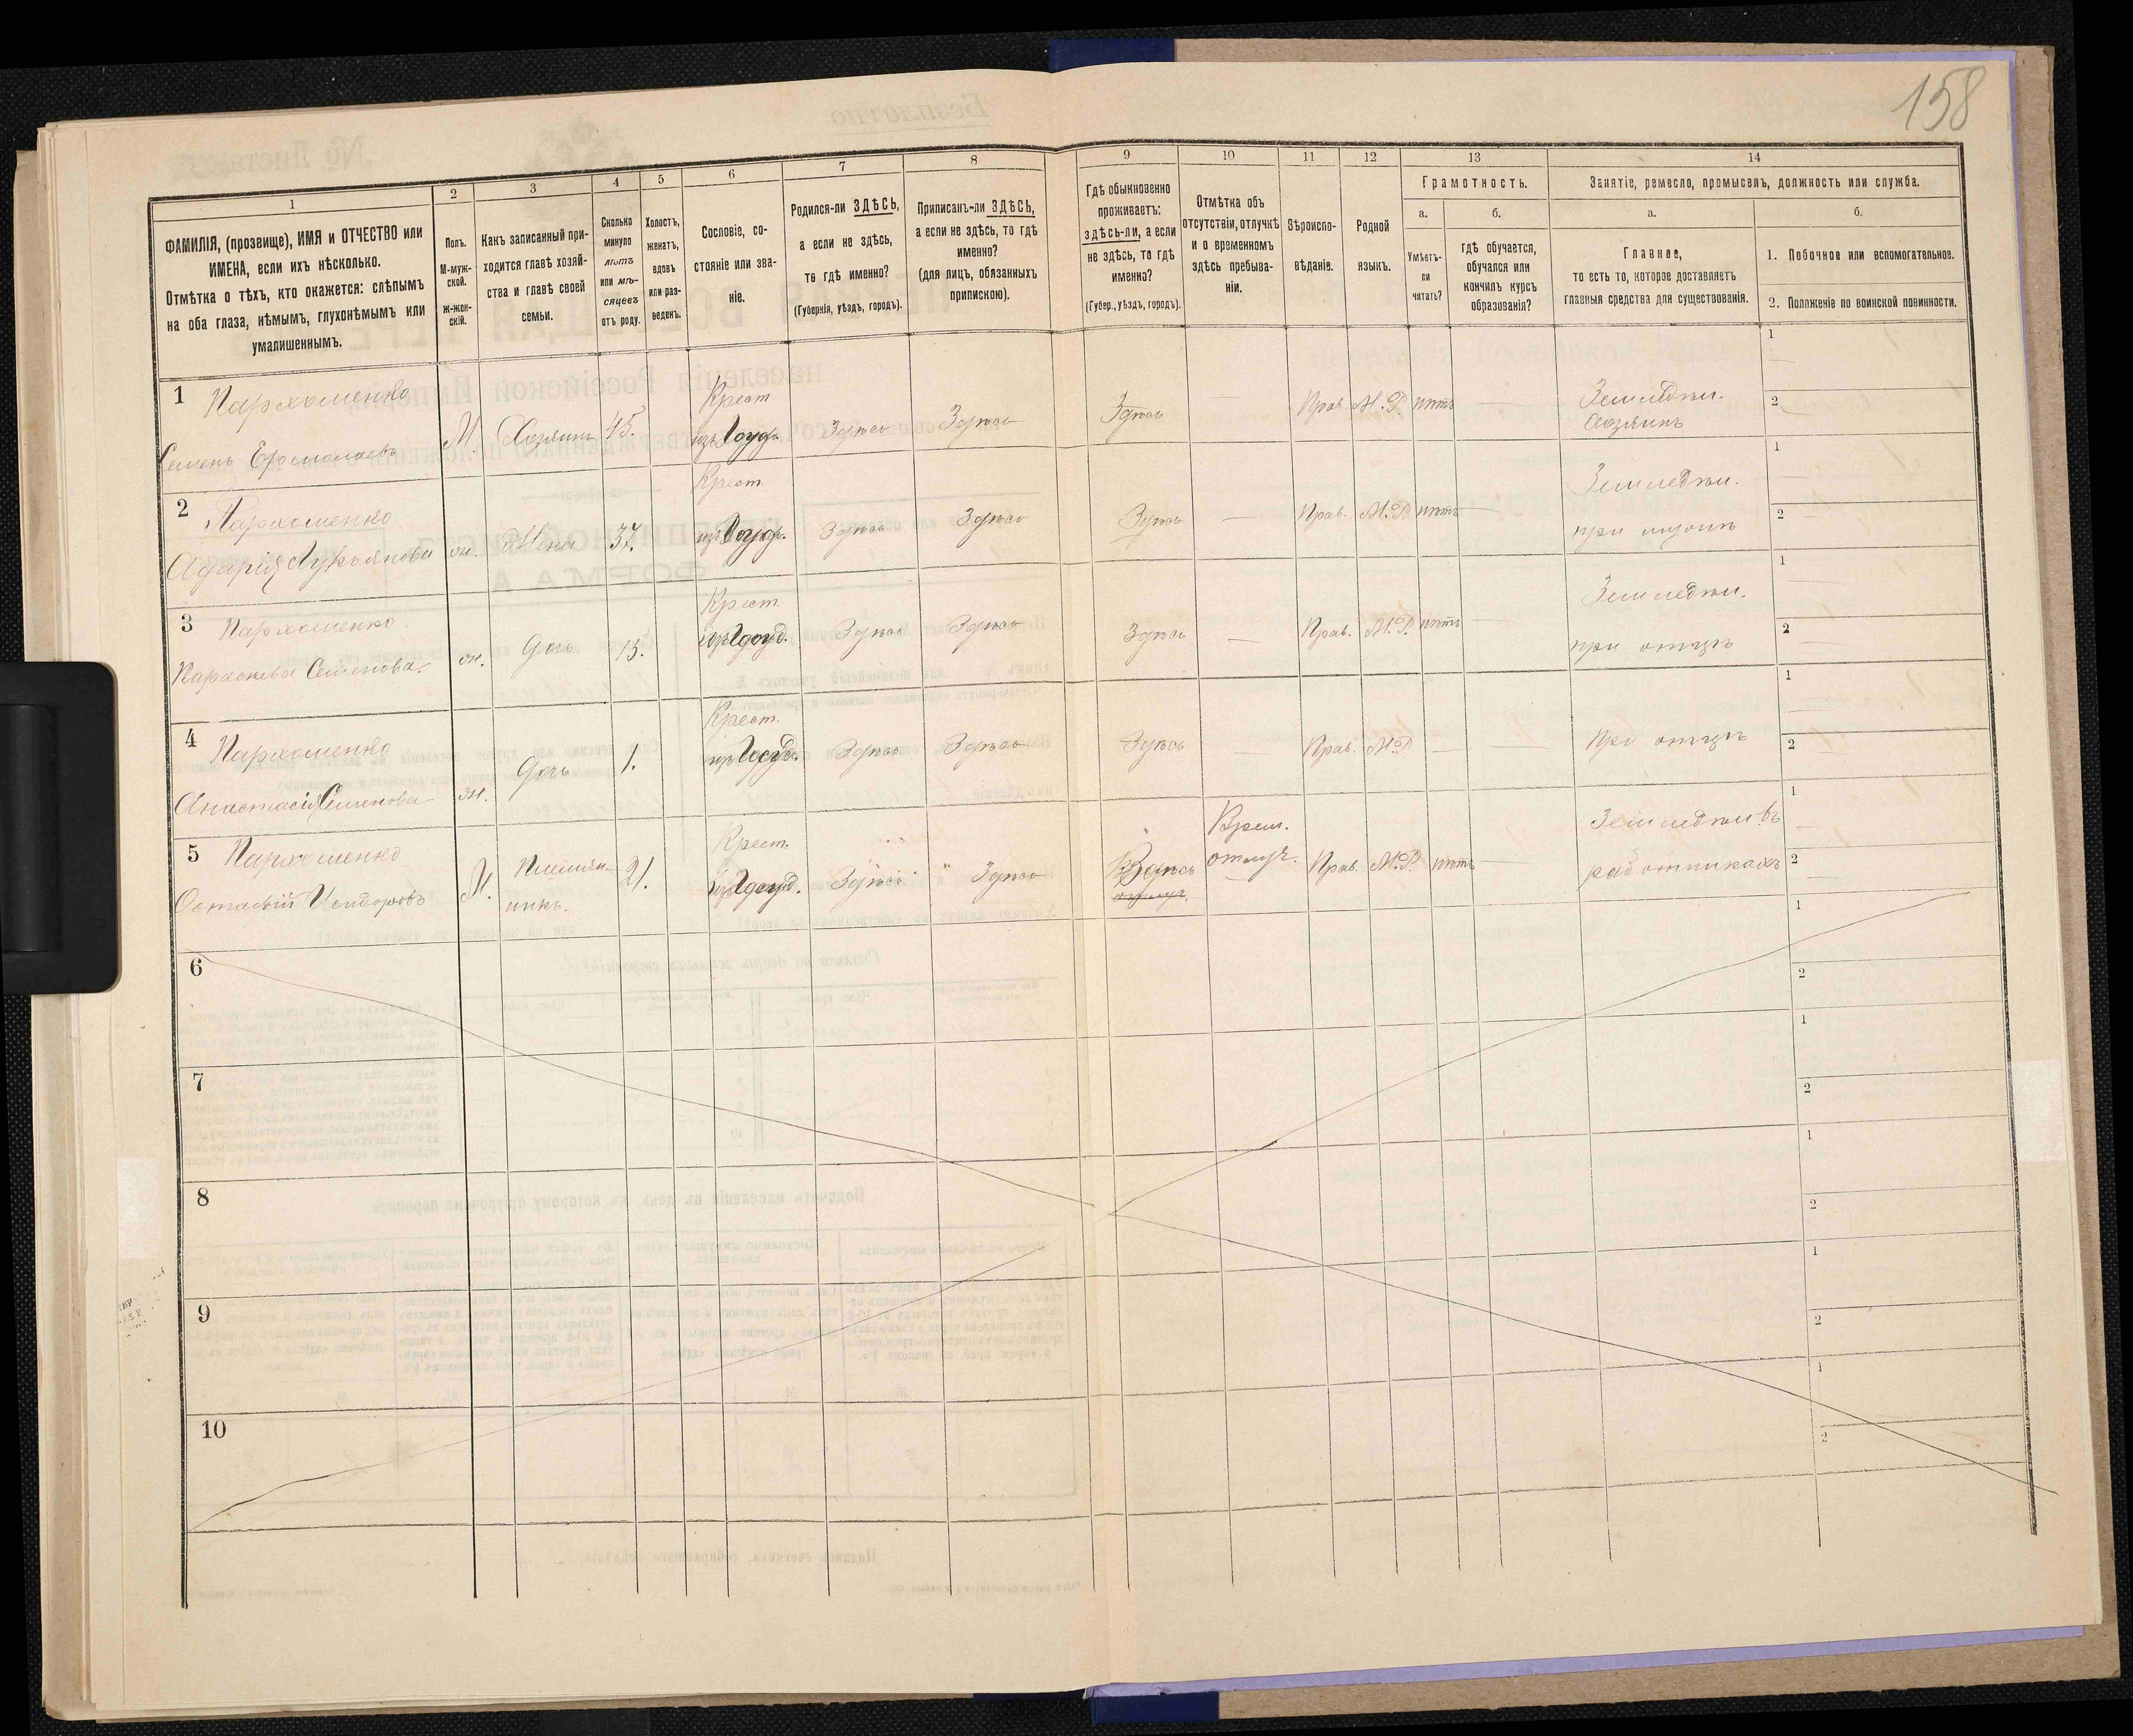 158
1
2
3
4
5
6
7
8
9
10
11
12
13
14
ФАМИЛІЯ, (прозвище), ИМЯ и ОТЧЕСТВО или
ИМЕНА, если ихъ нѣсколько.
Отмѣтка о тѣхъ, кто окажется: слѣпымъ
на оба глаза, нѣмымъ, глухонѣмымъ или
умалишеннымъ.
Полъ.
М-муж-
ской.
Ж-жен-
скій.
Какъ записанный при-
ходится главѣ хозяй-
ства и главѣ своей
семьи.
Сколько
минуло
лѣтъ
или мѣ-
сяцевъ
отъ роду.
Холостъ,
женатъ,
вдовъ
или раз-
веденъ.
Сословіе, со-
стояніе или зва-
ніе.
Родился-ли ЗДѢСЬ,
а если не здѣсь,
то гдѣ именно?
(Губернія, уѣздъ, городъ).
Приписанъ-ли ЗДѢСЬ,
а если не здѣсь, то гдѣ
именно?
(для лицъ, обязанныхъ
припискою).
Гдѣ обыкновенно
проживаетъ:
здѣсь-ли, а если
не здѣсь, то гдѣ
именно?
(Губер., уѣздъ, городъ).
Отмѣтка объ
отсутствіи, отлучкѣ
и о временномъ
здѣсь пребыва-
ніи.
Вѣроиспо-
вѣданіе.
Родной
языкъ.
Грамотность.
а.
Умѣетъ-
ли
читать?
б.
гдѣ обучается,
обучался или
кончилъ курсъ
образованія?
Занятіе, ремесло, промыселъ, должность или служба.
а.
Главное,
то есть то, которое доставляетъ
главныя средства для существованія.
б.
1. Побочное или вспомогательное.
2. Положеніе по воинской повинности.
1 Пархоменко Крест. Земледѣл. 1
Семенъ Ермолаевъ М. Хозяинъ 45. изъ Госуд. Здѣсь Здѣсь Здѣсь — Прав. М.Р. нѣтъ — Хозяинъ 2
2 Пархоменко Крест. Земледѣл. 1
Лукьянова ж. Жена 37. изъ Госуд. Здѣсь Здѣсь Здѣсь — Прав. М.Р. нѣтъ — при мужѣ 2
3 Пархоменко Крест. Земледѣл. 1
Параскева Семенова ж. Дочь 13. изъ Госуд. Здѣсь Здѣсь Здѣсь — Прав. М.Р. нѣтъ — при отцѣ 2
4 Пархоменко Крест. 1
Анастасія Семенова ж. Дочь 1. изъ Госуд. Здѣсь Здѣсь Здѣсь — Прав. М.Р. — При отцѣ 2
5 Пархоменко Крест. Врем. Земледѣл. въ 1
Исидоровъ М. Племян- 21. изъ Госуд. Здѣсь Здѣсь Здѣсь отлуч. Прав. М.Р. нѣтъ — работникахъ 2
никъ.
6 1
2
7 1
2
8 1
2
9 1
2
10 1
2